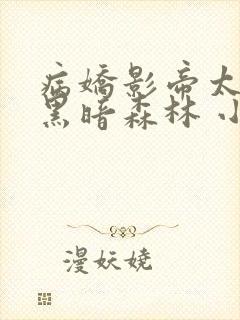 病嬌影帝太
黑暗森林 小
漫妖嬈